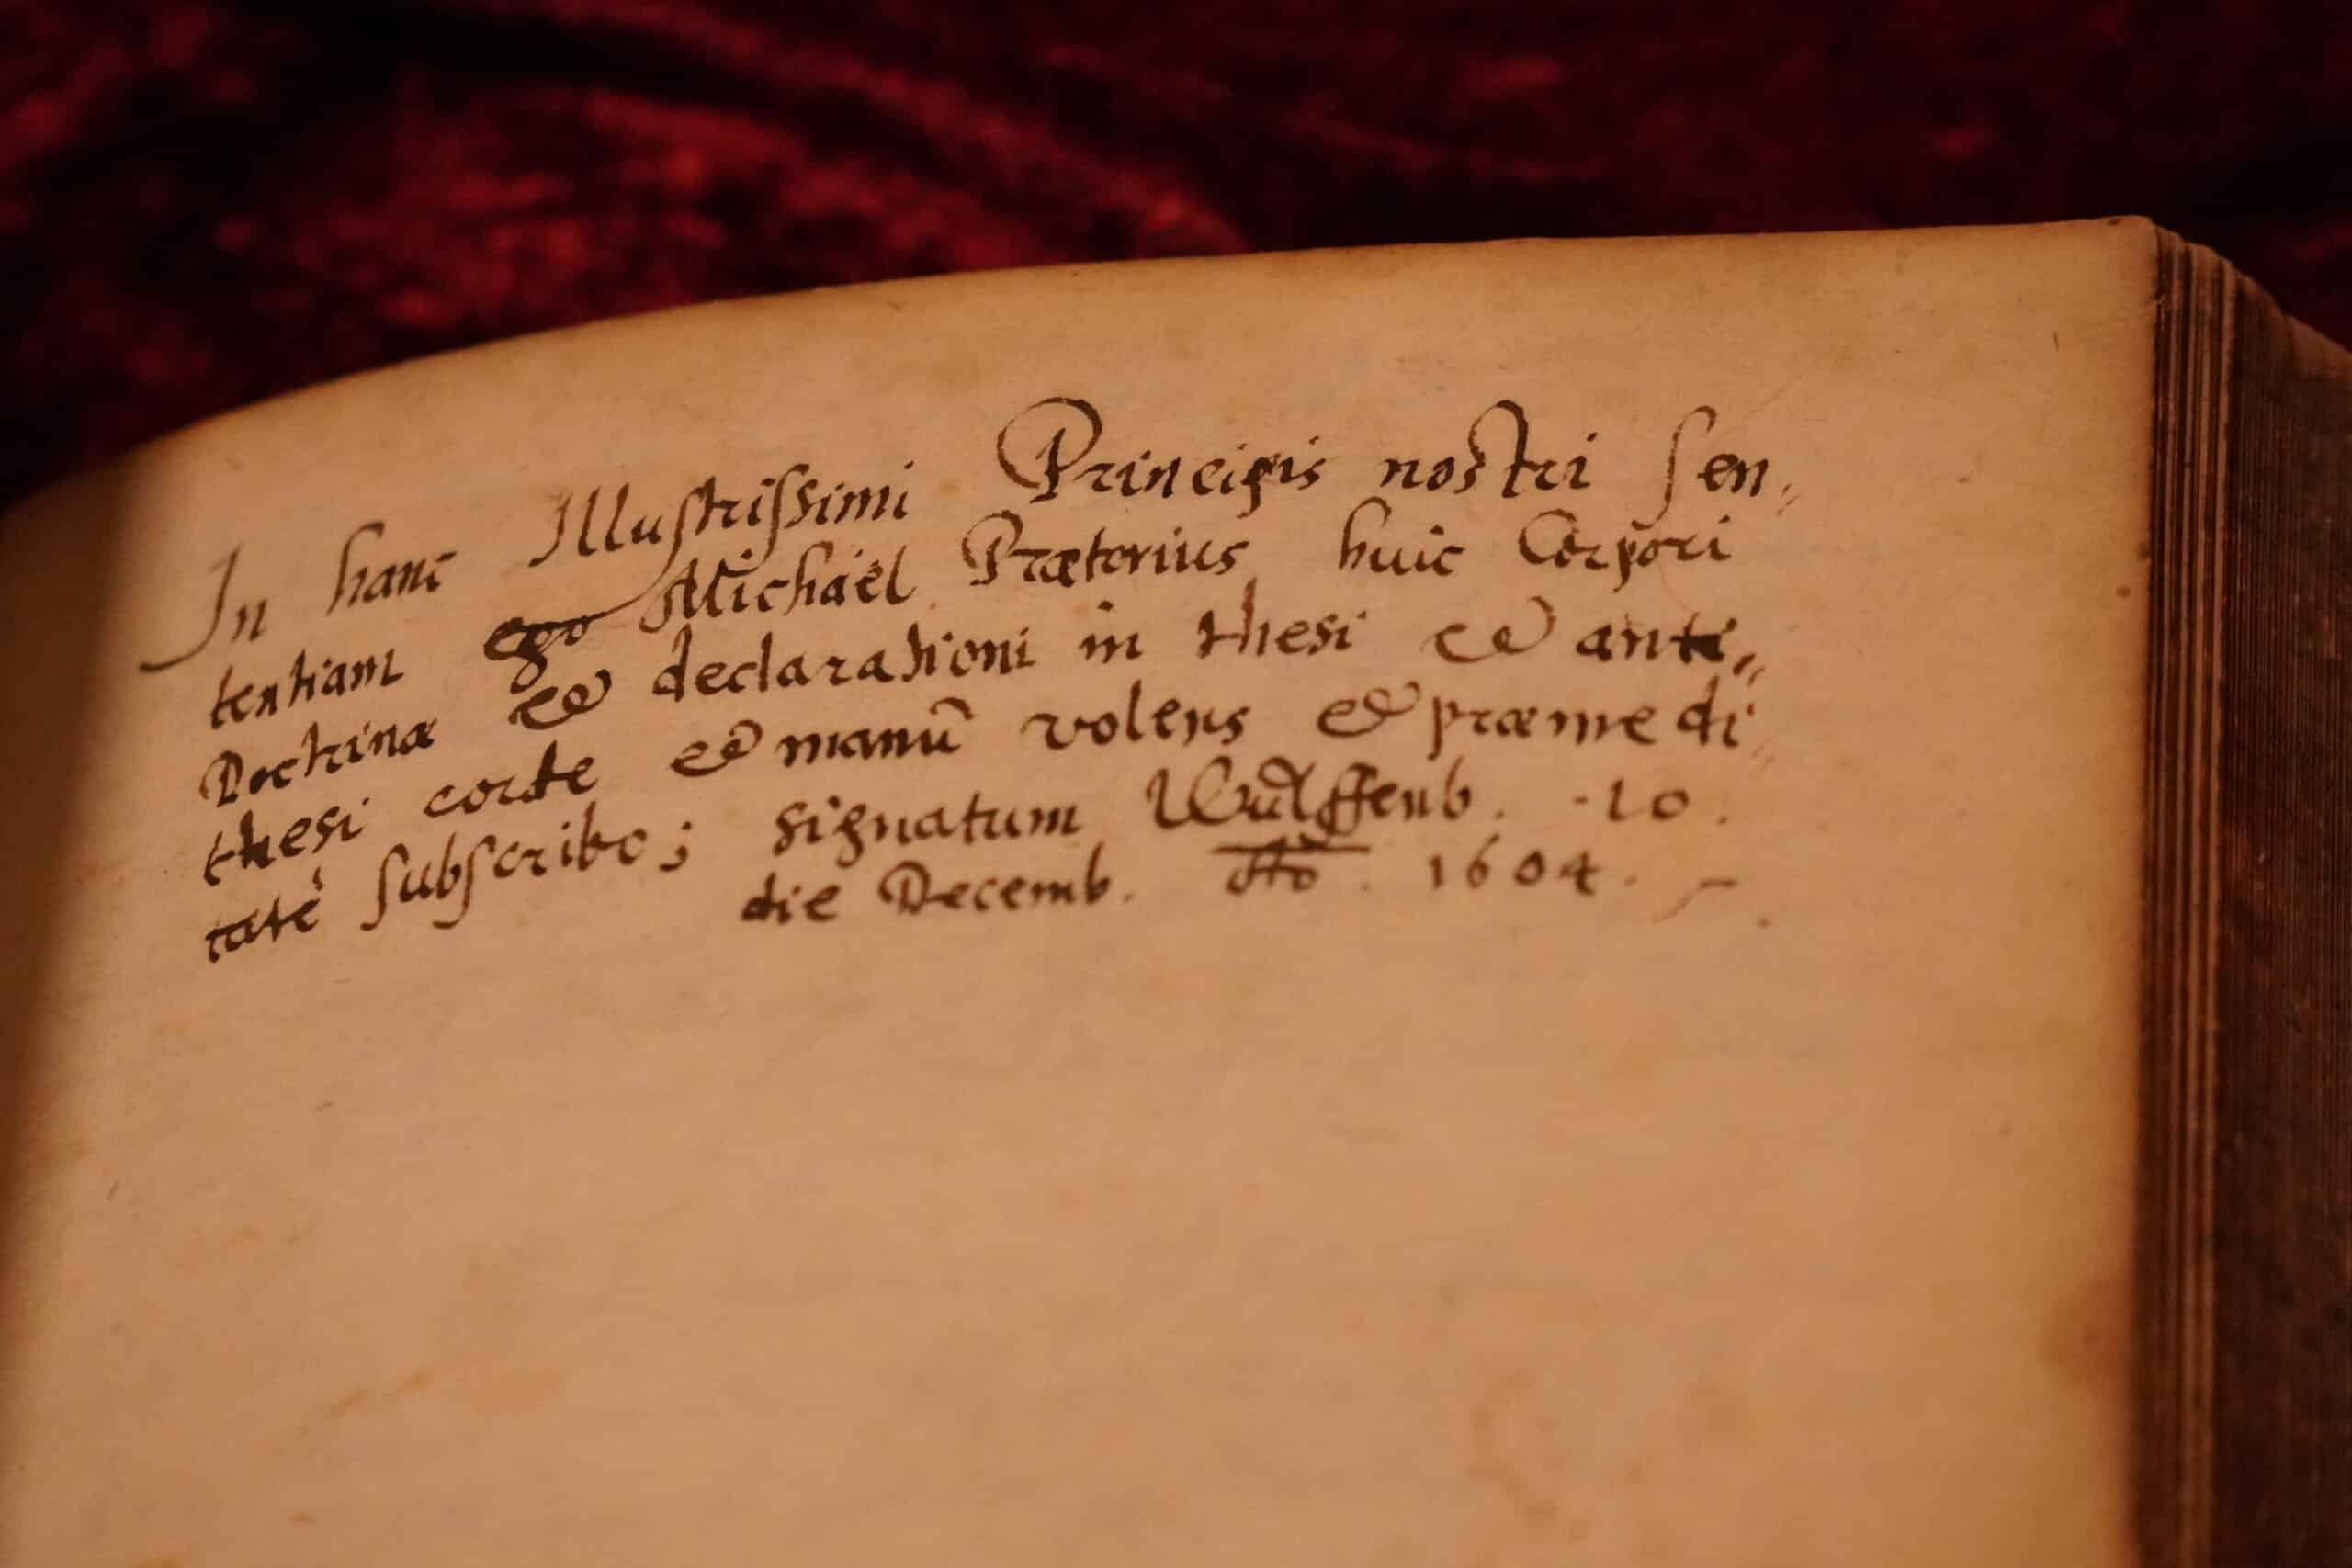 In hanc Illustrissimi Principis nostri sen„
tentiam ego Michaël Prætorius huic Corpori
Doctrinæ et declarationi in thesi et anti„
thesi corde et manū volens et præmedi„
tatè subscribo; signatum Wulffenb. 10.
die Decemb. Aō. 1604.